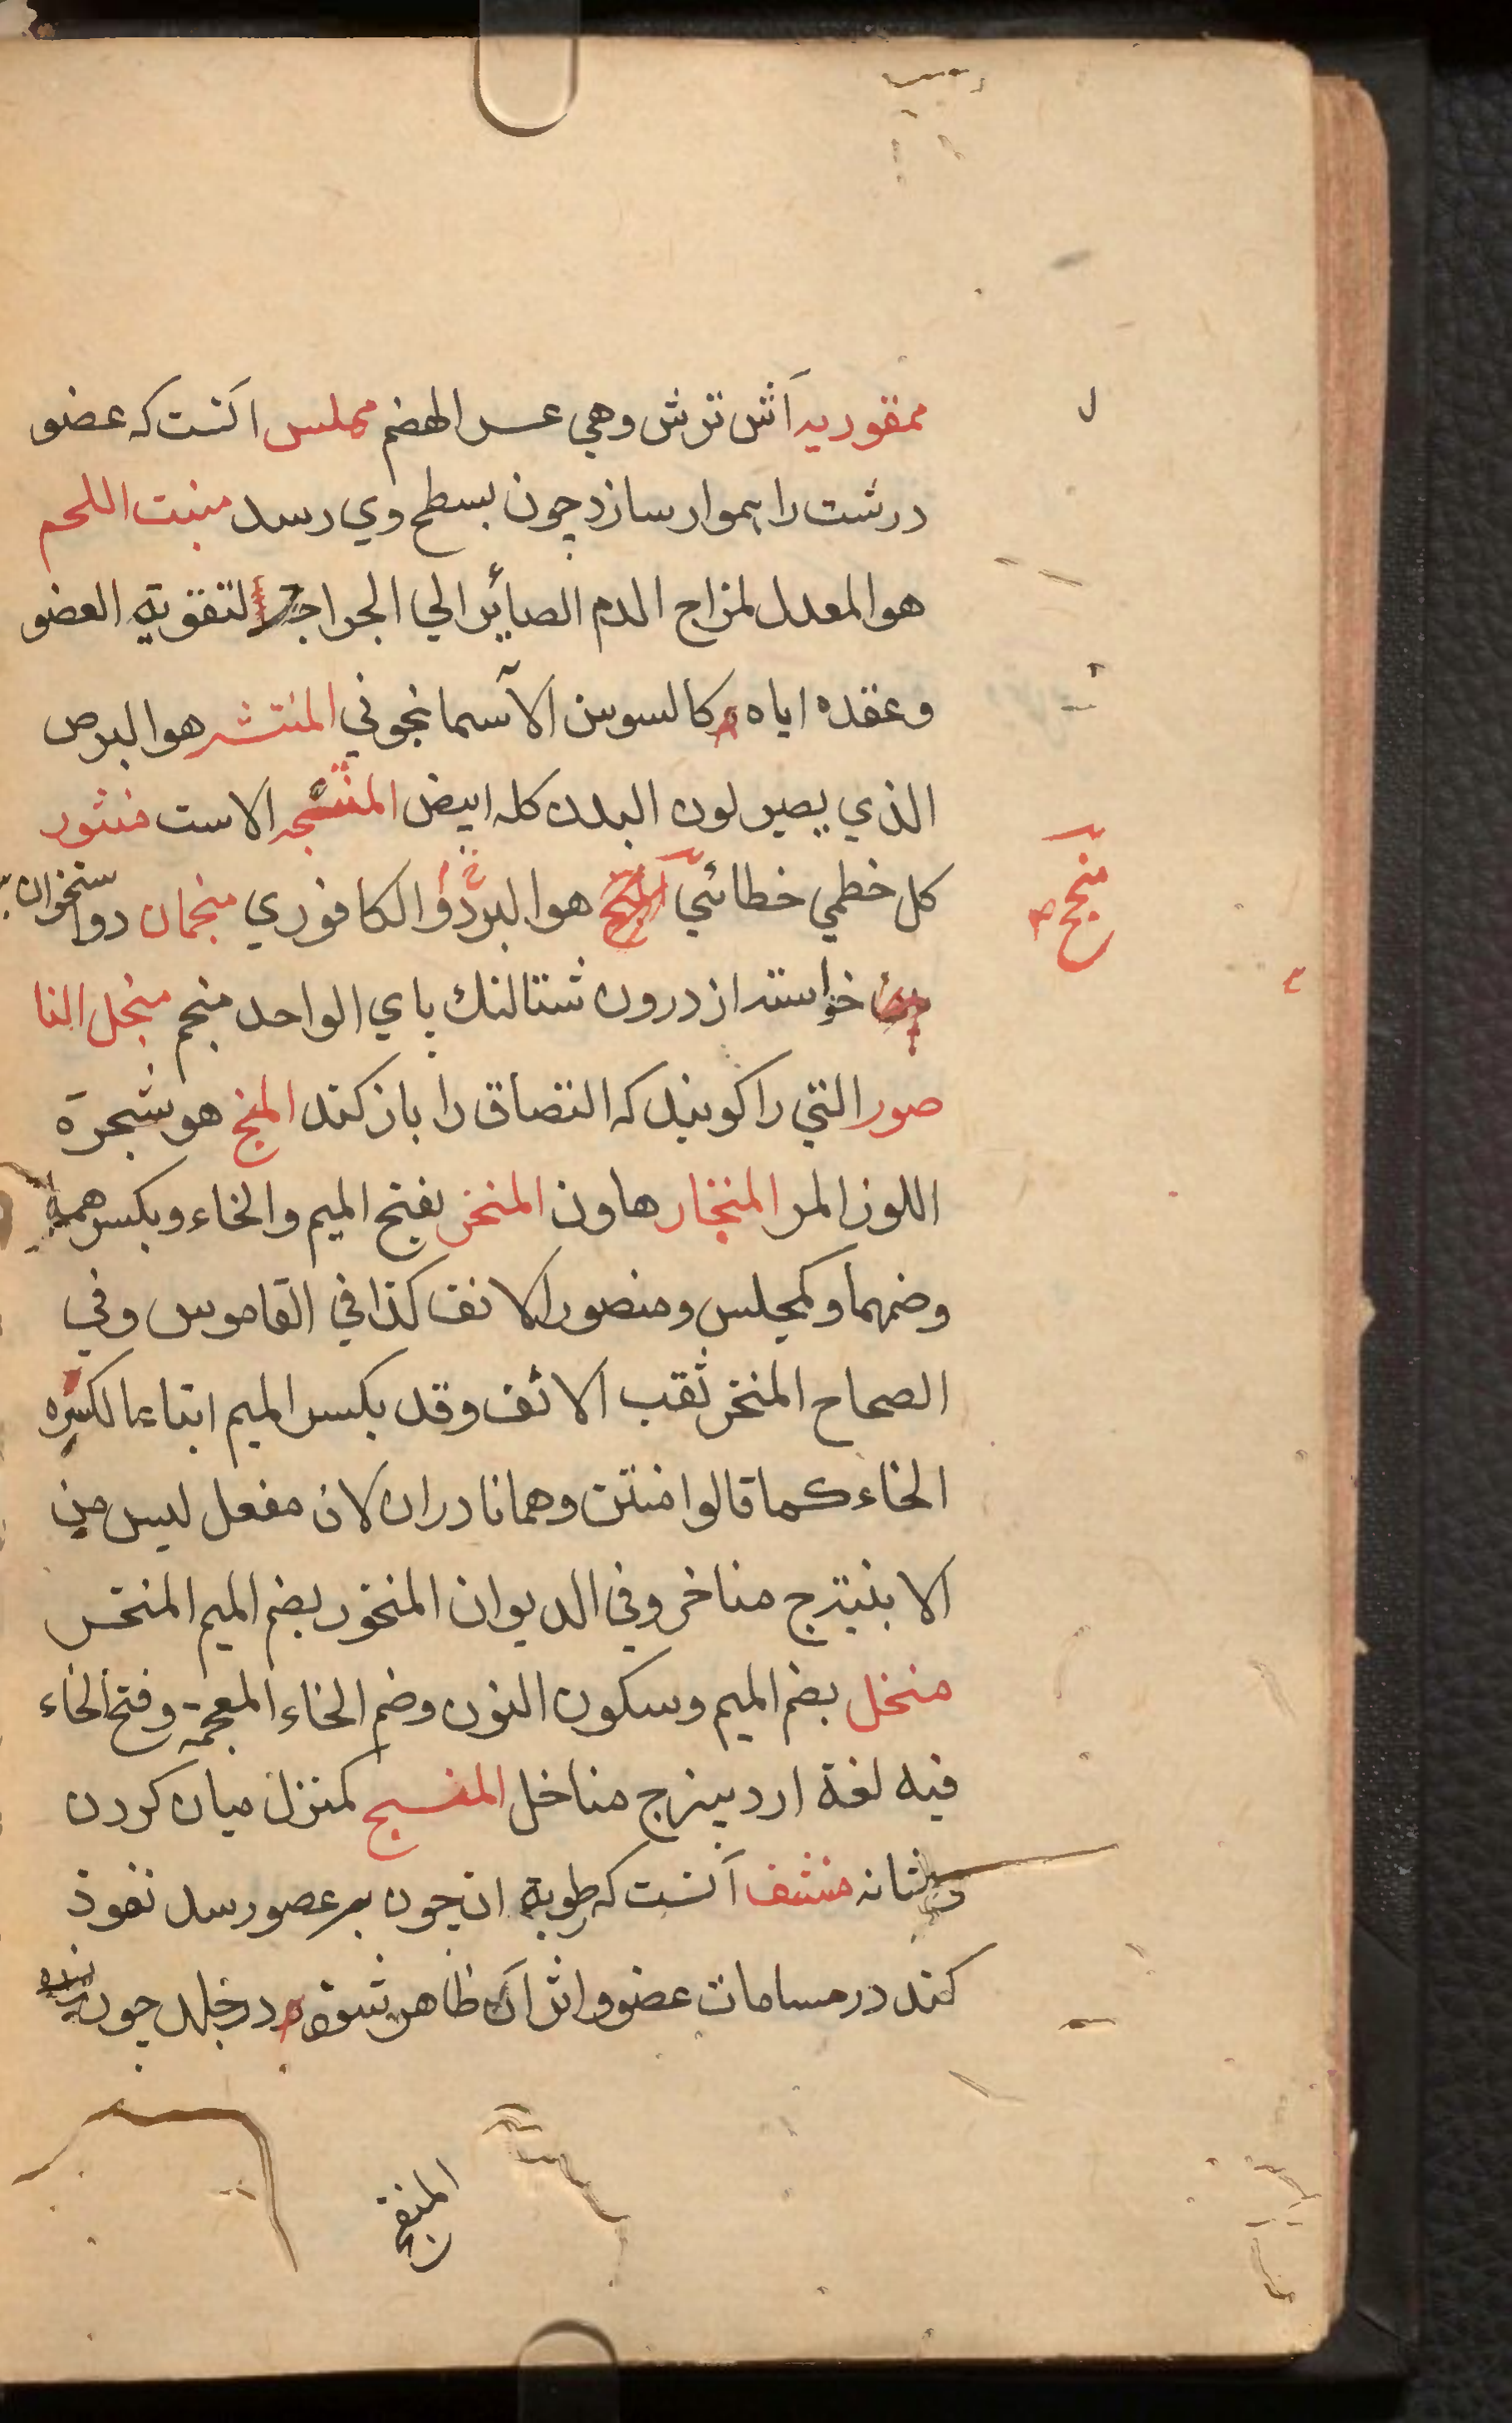 ممقوریه آش ترش وهي عسر الهضم مملس آنست که عضو
درشت را هموار سازد چون بسطح وي رسد منبت اللحم
هو المعدل لمزاج الدم الصائر الي الجراحة لتقوية العضو
وعقده اياه كالسوسن الآسمانجوني المنتشر هو البرص
الذي يصير لون البدن كله ابيض المنتجه الاست منثور
كل خطمي خطائي هو البرد والكافوري منجمان دو استخوان
خواسته از درون شتالنك پاي الواحد منجم منجل النا
صور التي را كويند كه التصاق را باز كند المنج هو شجرة
اللوز المر المنخار هاون المنخر بفتح الميم والخاء وبكسرهما
وضمهما وكمجلس ومنصور الانف كذا في القاموس وفي
الصحاح المنخر ثقب الانف وقد بكسر الميم اتباعا لكسره
الخاء كما قالوا منتن وهما نادران لان مفعل ليس من
الابنية ج مناخر وفي الديوان المنخور بضم الميم المنخر
منخل بضم الميم وسكون النون وضم الخاء المعجمة وفتح الخاء
فيه لغة ارد بيز ج مناخل المنسج كمنزل ميان كردن
وشانه منشف آنست که رطوبة ان چون بر عضو رسد نفوذ
کند در مسامات عضو واثر آن ظاهر نشود در جلد چون
منجح
المنفخ